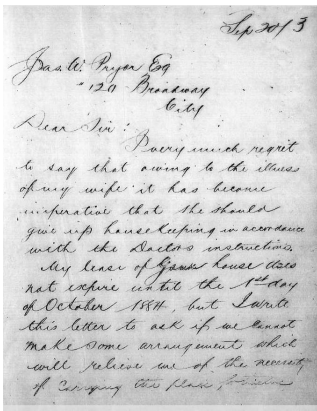 Sep 20/ 3
Jas. W. Pryor Esq
" 120 Broadway
City
Dear Sir:
I very much regret
to say that owing to the illness
of my wife it has become
imperative that she should
give up housekeeping in accordance
with the Doctors instructions.
My lease of your house does
not expire until the 1st day
of October 1884, but I write
this letter to ask if we cannot
make some arrangement which
will relieve me of the necessity
of carrying the place